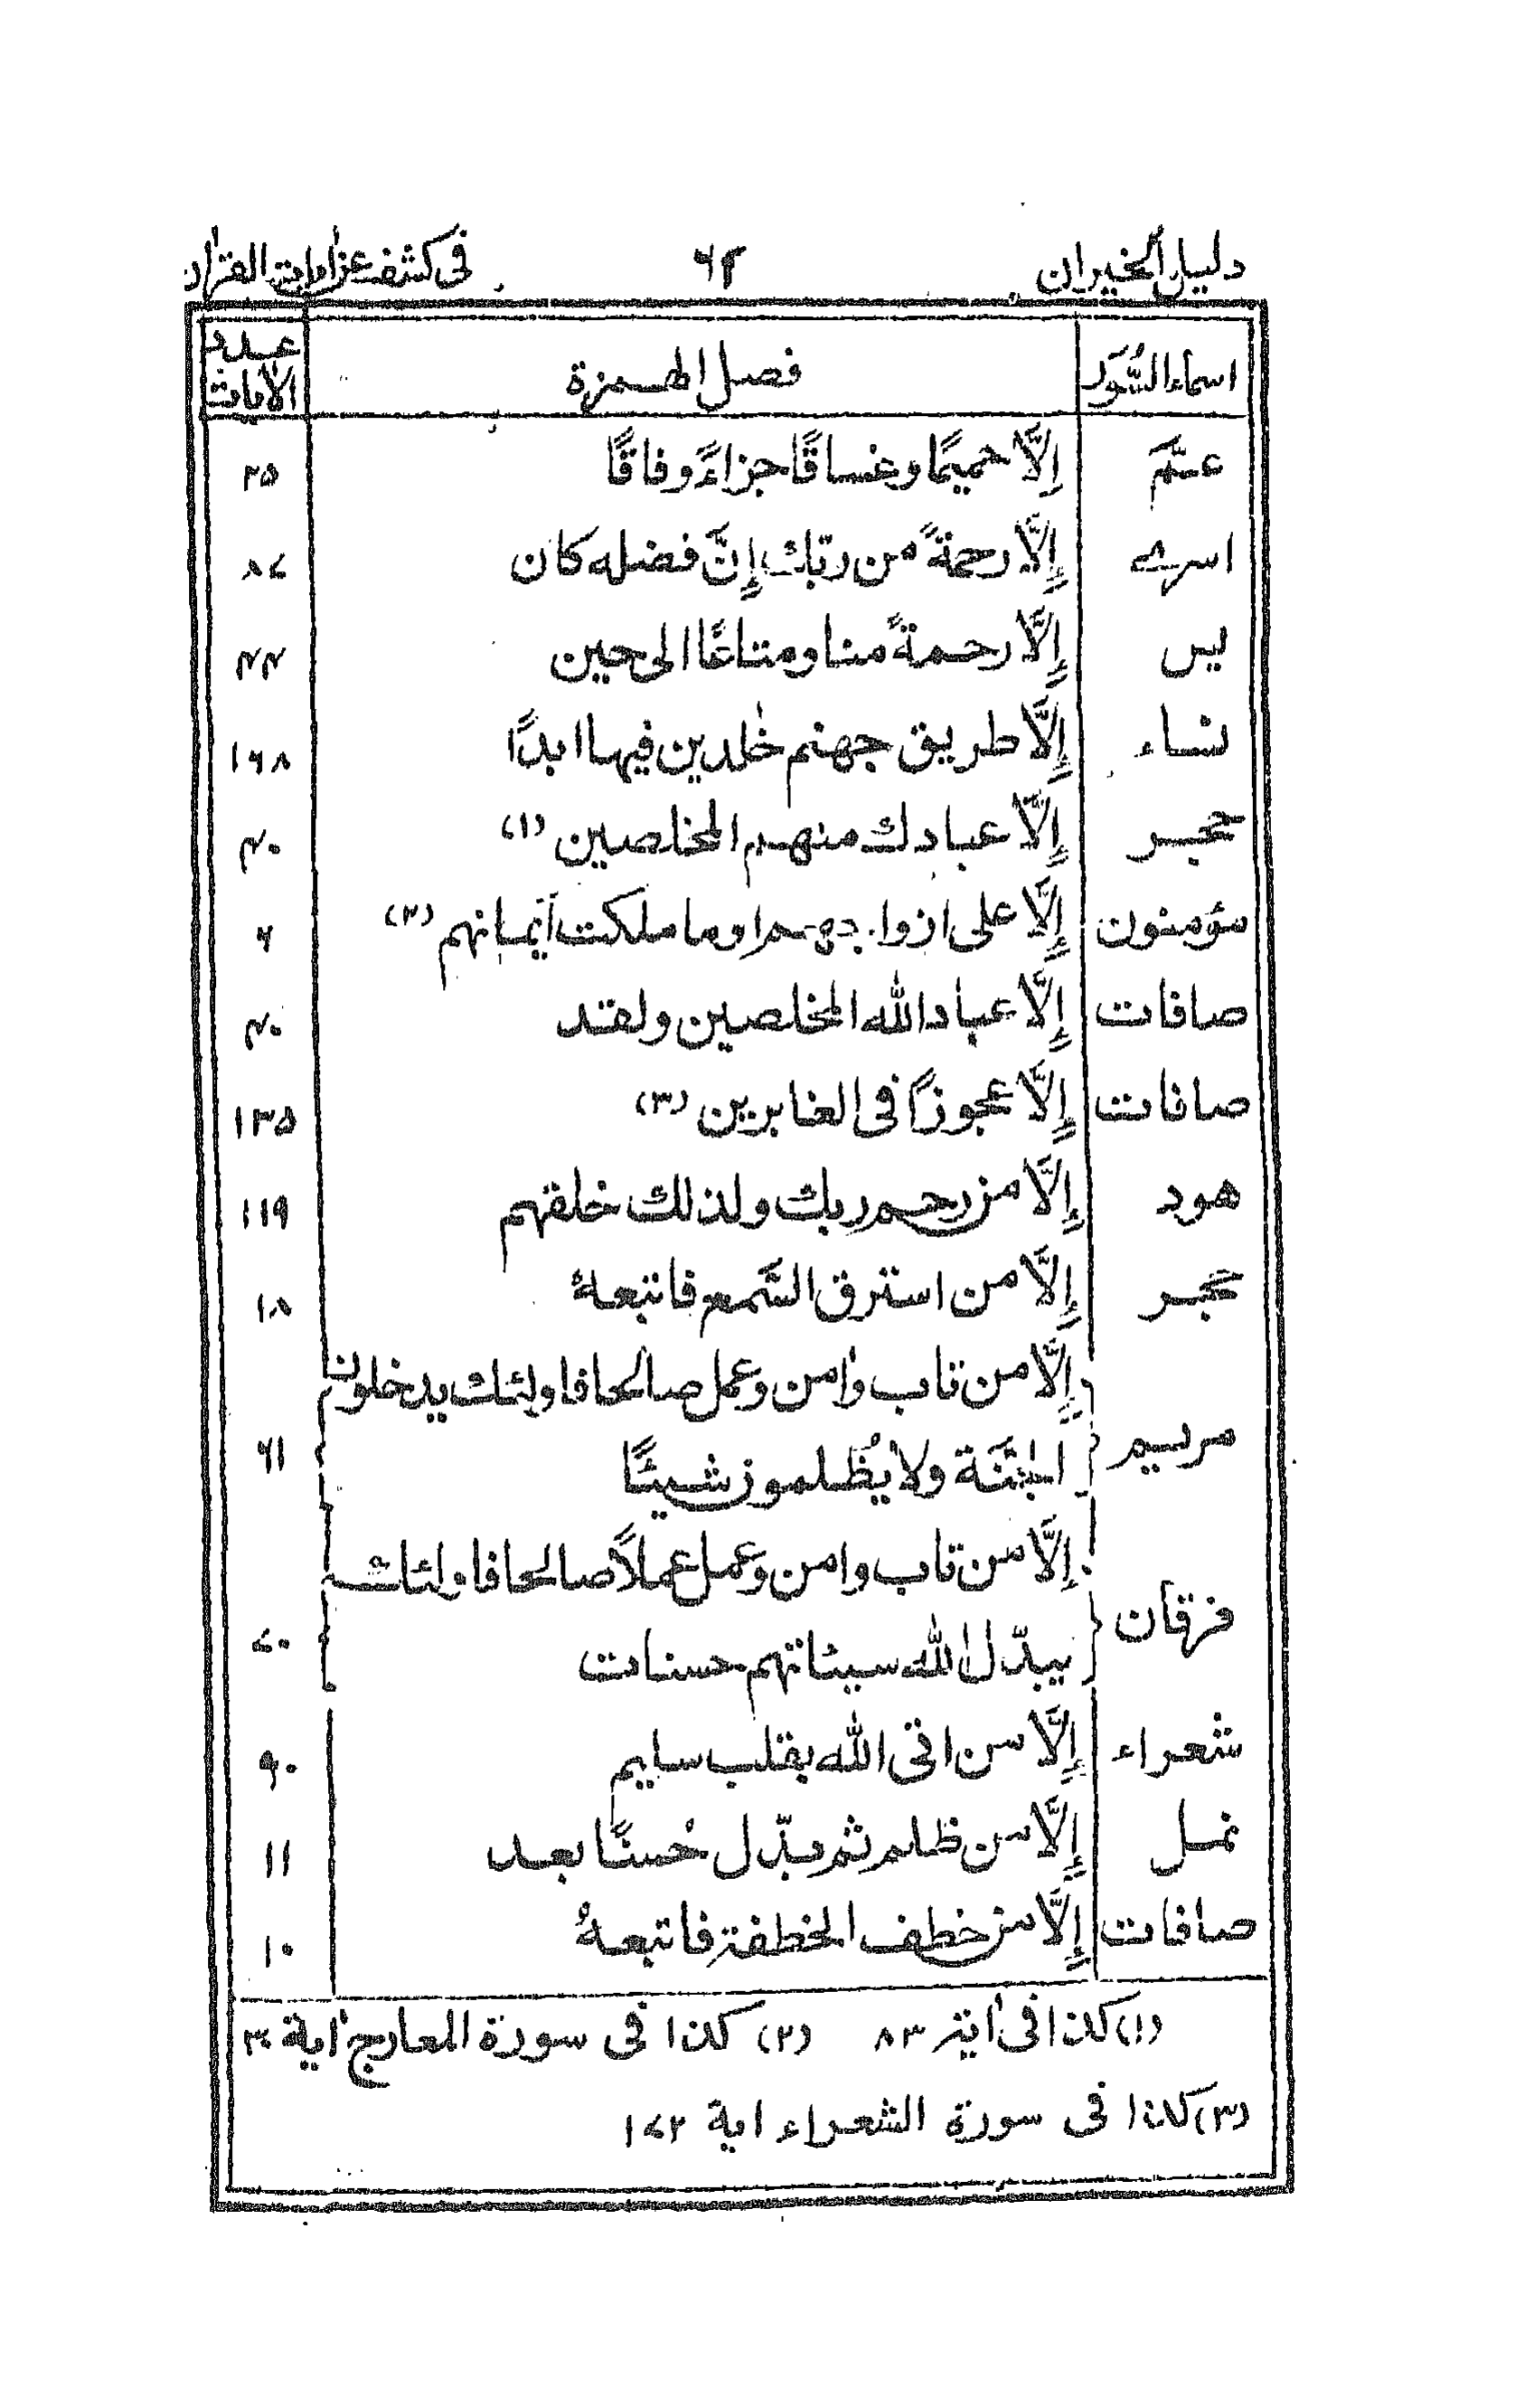 دليل الحيران ٦٢ فى كشف عزامات القرآن
اسماء السُّوَر فصل الهمزة عدد الاٰيات
عمّ إِلَّا حميمًا وغساقًا جزاءً وفاقًا ٢٥
اسرے إِلَّا رحمةً من ربّك إِنَّ فضله كان ٨٧
يس إِلَّا رحمةً منا ومتاعًا الى حين ٤٤
نساء إِلَّا طريق جهنم خٰلدين فيها ابدًا ١٦٨
حجر إِلَّا عبادك منهم المخلصين (١) ٤٠
مؤمنون إِلَّا على ازواجهم او ما ملكت أيمانهم (٢) ٦
صافات إِلَّا عباد الله المخلصين ولقد ٤٠
صافات إِلَّا عجوزًا فى الغابرين (٣) ١٣٥
هود إِلَّا من رحم ربك ولذلك خلقهم ١١٩
حجر إِلَّا من استرق السَّمع فاتبعهٗ ١٨
إِلَّا من تاب واٰمن وعمل صالحا فاولئك يدخلون
مريم الجنَّة ولا يُظلمون شيئًا ٦١
إِلَّا من تاب واٰمن وعمل عملاً صالحا فاولئك
فرقان يبدّل الله سيئاتهم حسنات ٧٠
شعراء إِلَّا من اتى الله بقلب سليم ٩٠
نمل إِلَّا من ظلم ثم بدّل حُسنًا بعد ١١
صافات إِلَّا من خطف الخطفة فاتبعهٗ ١٠
(١) كذا فى اٰية ٨٣ (٢) كذا فى سورة المعارج اٰية ٣٠
(٣) كذا فى سورة الشعراء اية ١٧٢